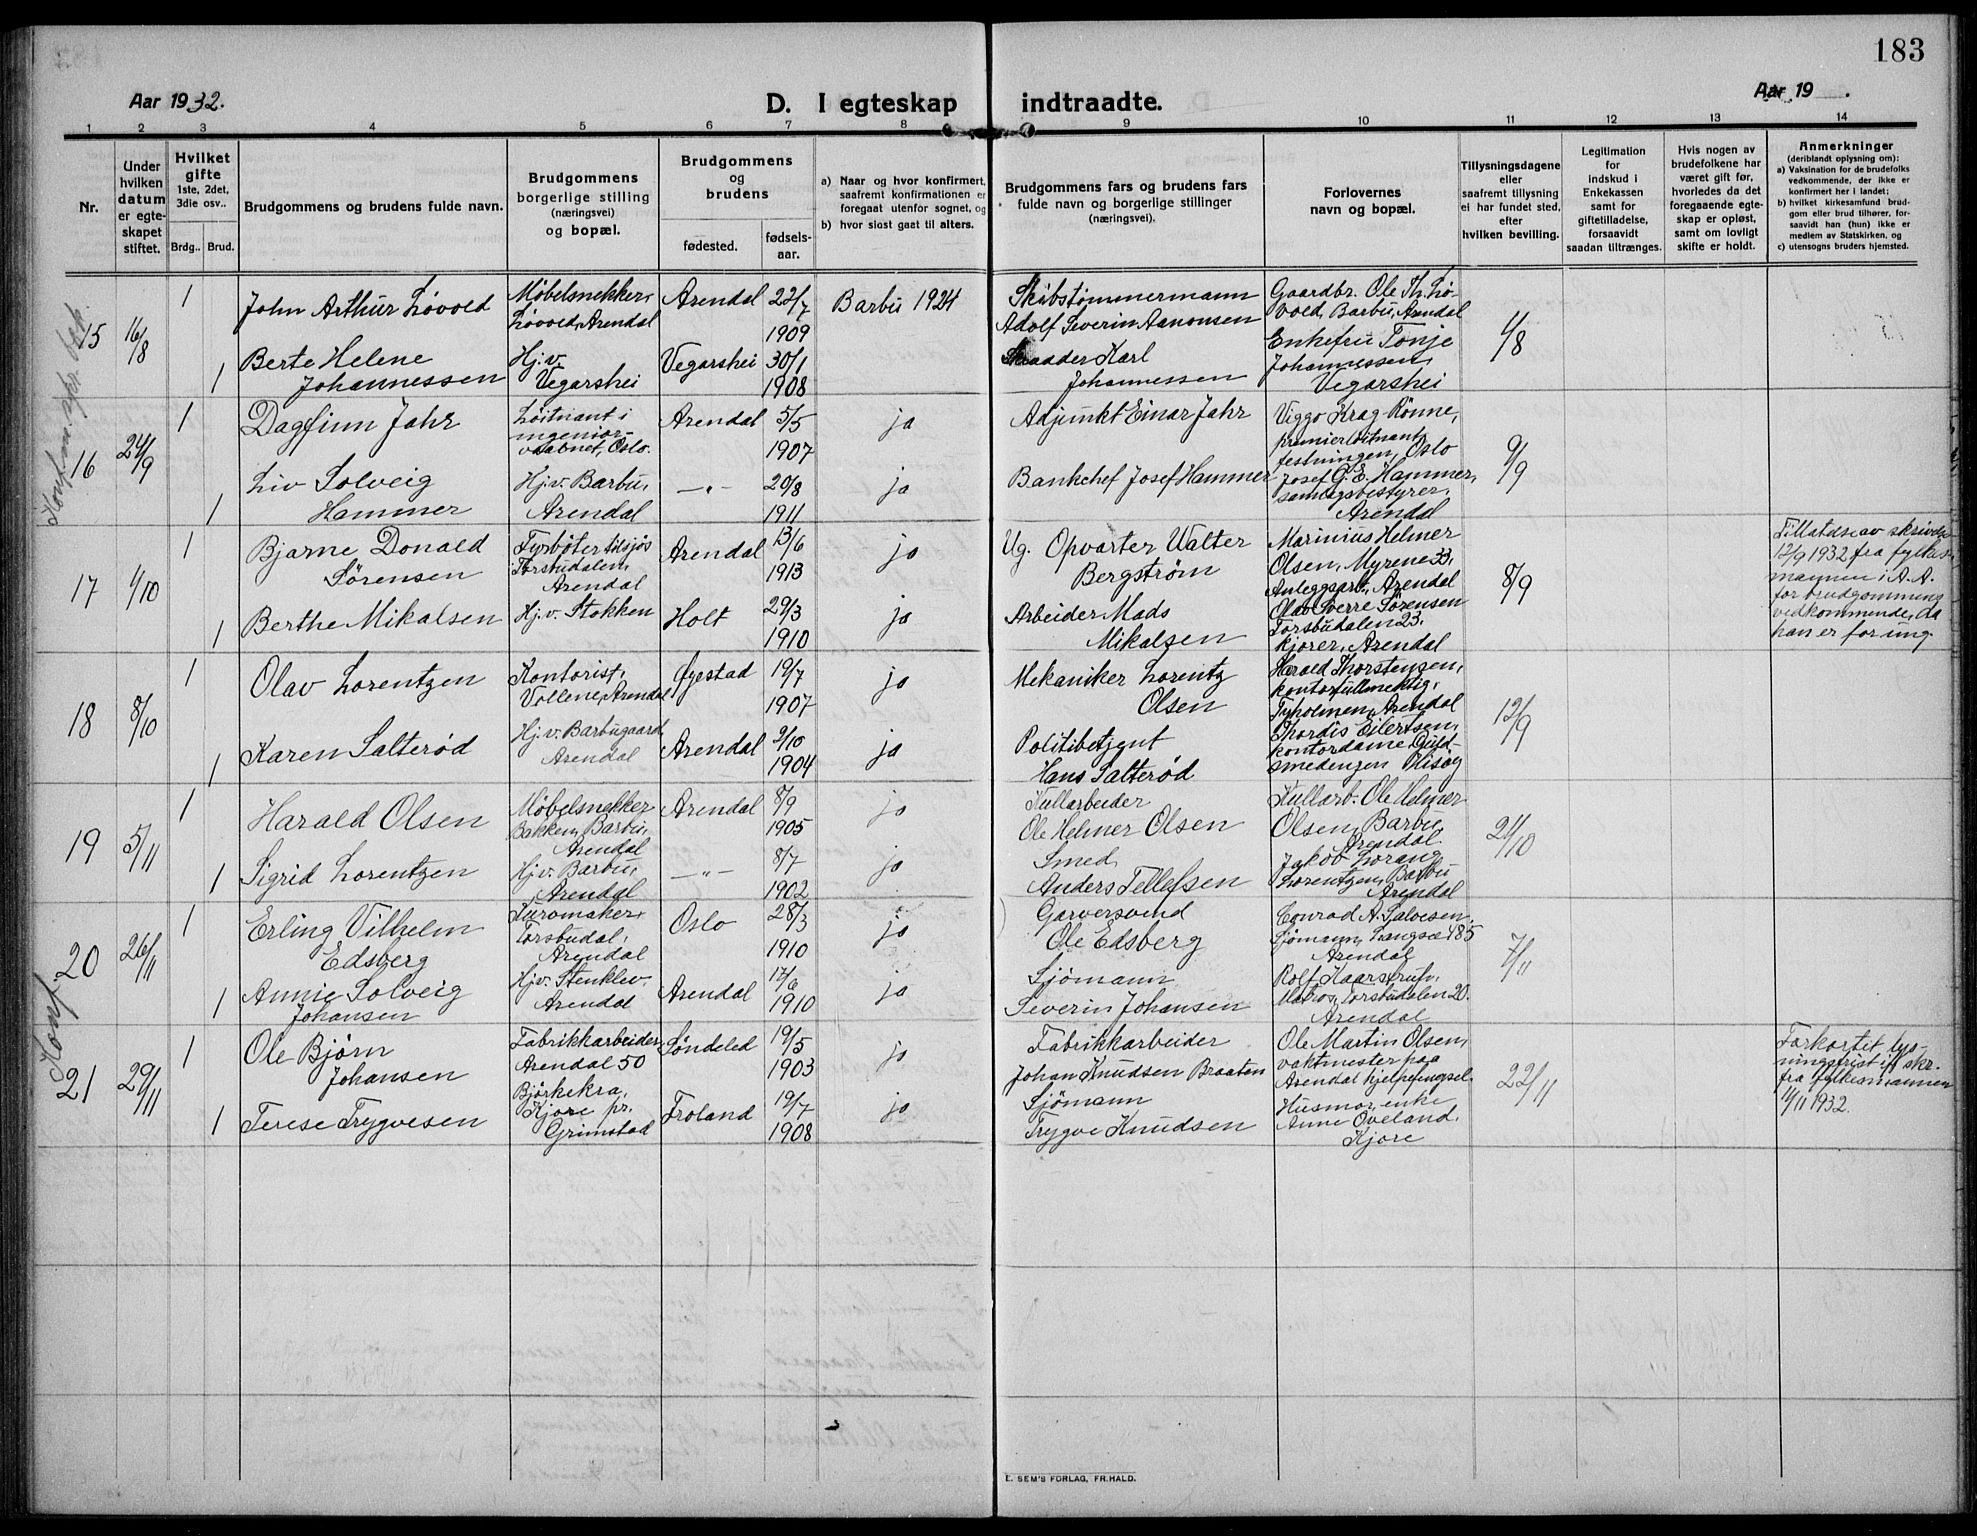 183
Aar 1932.
D. I egteskap indtraadte.
Aar 19 .
1 2 3 4 5 6 7 8 9 10 11 12 13 14
Nr.
Under
hvilken
datum
er egte-
skapet
stiftet.
Hvilket
gifte
1ste, 2det,
3die osv..
Brdg.. Brud.
Brudgommens og brudens fulde navn.
Brudgommens
borgerlige stilling
(næringsvei)
og bopæl.
Brudgommens
og
brudens
fødested.
fødsels-
aar.
a) Naar og hvor konfirmert,
saafremt konfirmationen er
foregaat utenfor sognet, og
b) hvor sidst gaat til alters.
Brudgommens fars og brudens fars
fulde navn og borgerlige stillinger
(næringsvei).
Forlovernes
navn og bopæl.
Tillysningsdagene
eller
saafremt tillysning
ei har fundet sted,
efter
hvilken bevilling.
Legitimation
for
indskud i
Enkekassen
samt for
giftetilladelse,
forsaavidt
saadan tiltrænges.
Hvis nogen av
brudefolkene har
været gift før,
hvorledes da det
foregaaende egte-
skap er opløst,
samt om lovligt
skifte er holdt.
Anmerkninger
(deriblandt oplysning om):
a) Vaksination for de brudefolks
vedkommende, der ikke er
konfirmert her i landet;
b) hvilket kirkesamfund brud-
gom eller brud tilhører, for-
saavidt han (hun) ikke er
medlem av Statskirken, og
c) utensogns bruders hjemsted.
15
16/8
1
John Arthur Løvold
Møbelsnekker,
Løvold, Arendal
Arendal
22/7
1909
Barbu 1924
Skibstømmermann
Adolf Severin Aanonsen
Gaardbr. Ole Th. Lø-
vold, Barbu, Arendal
4/8
1
Berte Helene
Johannessen
Hj.v.
Vegarshei
Vegarshei
30/1
1908
Karl
Johannessen
Enkefru Tonje
Johannessen,
Vegarshei
16
24/9
1
Dagfinn Jahr
Løitnant i
ingeniør-
vaabnet, Oslo.
Arendal
5/5
1907
ja
Adjunkt Einar Jahr
Viggo Krag Rønne,
premierløitnant
festningen, Oslo
9/9
1
Liv Solveig
Hammer
Hj.v. Barbu,
Arendal
—"—
20/8
1911
ja
Bankchef Josef Hammer
Josef G. E. Hammer,
samlagsbestyrer,
Arendal
17
1/10
1
Bjarne Donald
Sørensen
Fyrbøter tilsjøs
Torsbudalen,
Arendal
Arendal
13/6
1913
ja
Ug. Opvarter Walter
Bergstrøm
Marinius Helmer
Olsen, Myrene 33,
Anleggsarb., Arendal
8/9
Tillatdse av skrivelse
12/9 1932 fra fylkes-
mannen i A.A.
for brudgommens
vedkommende, da
han er for ung.
1
Berthe Mikalsen
Hj.v. Stokken
Holt
29/3
1910
ja
Arbeider Mads
Mikalsen
Olav Sverre Sørensen
Torsbudalen 23,
kjører, Arendal
18
8/10
1
Olav Lorentzen
Kontorist,
Vollene, Arendal
Øyestad
19/7
1907
ja
Mekaniker Lorentz
Olsen
Harald Thorstensen,
kontorfullmektig,
Tyholmen, Arendal
12/9
1
Karen Salterød
Hj.v. Barbugaard
Arendal
Arendal
2/10
1904
ja
Politibetjent
Hans Salterød
Thordis Eilertsen,
kontordame Guld-
smedengen Hisøy
19
5/11
1
Harald Olsen
Møbelsnekker
Bakken, Barbu,
Arendal
Arendal
8/9
1905
ja
Kullarbeider
Ole Helmer Olsen
Kullarb. Ole Helmer
Olsen, Barbu,
Arendal.
21/10
1
Sigrid Lorentzen
Hj.v. Barbu,
Arendal
—"—
8/7
1902
ja
Smed
Anders Tellefsen
Jakob Lorang
Lorentzen, Barbu
Arendal
20
26/11
1
Erling Vilhelm
Edsberg
Kurvmaker,
Torsbudal,
Arendal
Oslo
28/3
1910
ja
Garversvend
Ole Edsberg
Conrad A. Salvesen,
Sjømann, Langsæ 485
Arendal
7/11
1
Annie Solveig
Johansen
Hj.v. Stenklev.
Arendal
Arendal
17/6
1910
ja
Sjømann
Severin Johansen
Rolf Kaarstrup,
Matros, Torsbudalen 20.
Arendal
21
29/11
1
Ole Bjørn
Johansen
Fabrikkarbeider,
Arendal 50
Søndeled
19/5
1903
ja
Fabrikkarbeider
Johan Knudsen Braaten
Ole Martin Olsen,
vaktmester paa
Arendal hjelpefengsel.
22/11
Forkortet lys-
ningsfrist ifl. skr.
fra fylkesmannen
11/11 1932.
1
Terese Trygvesen
Bjørkekra,
Fjære pr.
Grimstad
Froland
19/7
1908
ja
Sjømann
Trygve Knudsen
Husmor, enke
Anne Oveland.
Fjære
E. SEM'S FORLAG, FR.HALD.